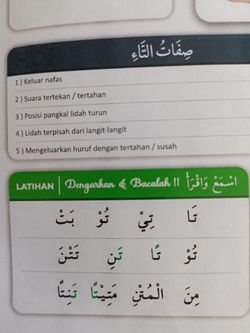 صِفَاتُ التَّاءِ
1 ) Keluar nafas
2 ) Suara tertekan / tertahan
3 ) Posisi pangkal lidah turun
4 ) Lidah terpisah dari langit-langit
5 ) Mengeluarkan huruf dengan tertahan / susah
LATIHAN | Dengarkan & Bacalah !! اسْمَعْ وَاقْرَأْ
تَا تِيْ تُوْ بَتْ
تُوْ تًا تَنِ تَتْنَ
مِنَ الْمُتْنِ مَتِيْتًا تَنِتًا